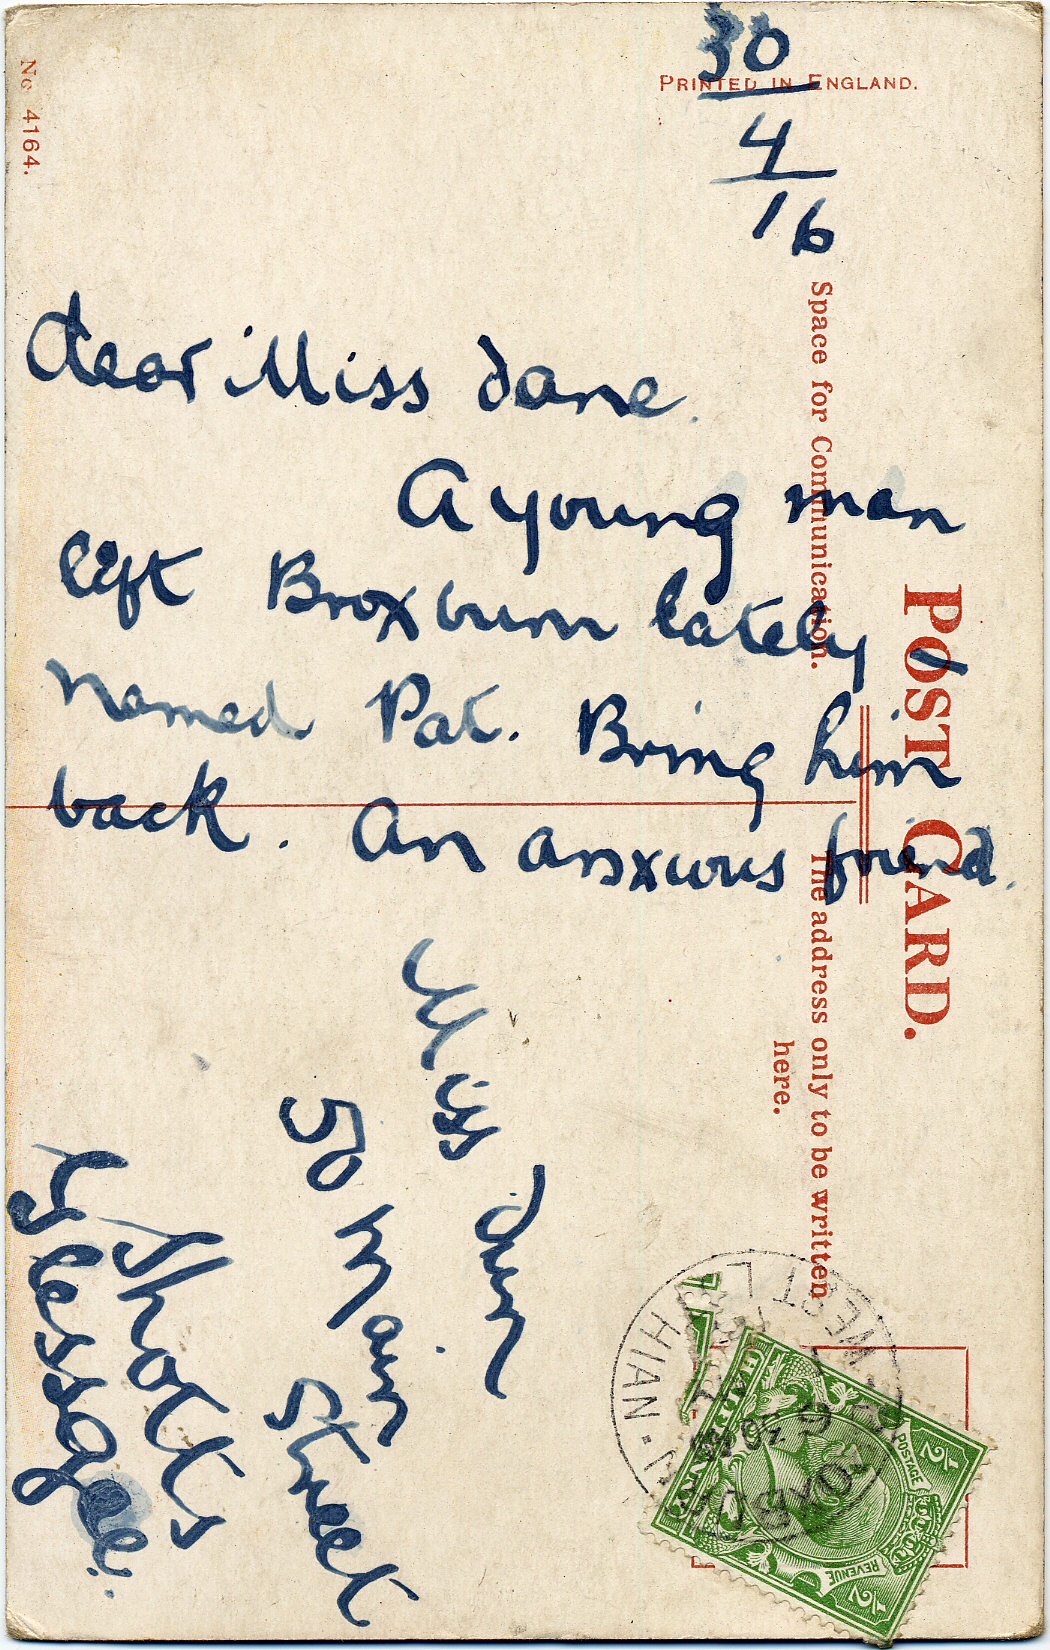 30
4
16
PRINTED IN ENGLAND.
No 4164.
POST CARD.
Space for Communication.
The address only to be written
here.
dear Miss Jane.
A young man
left Broxburn lately
named Pat. Bring him
back. An anxious friend.
Miss
50 Main
Street
Shotts
POSTAGE
REVENUE
½
½
WEST L HIAN
OXB